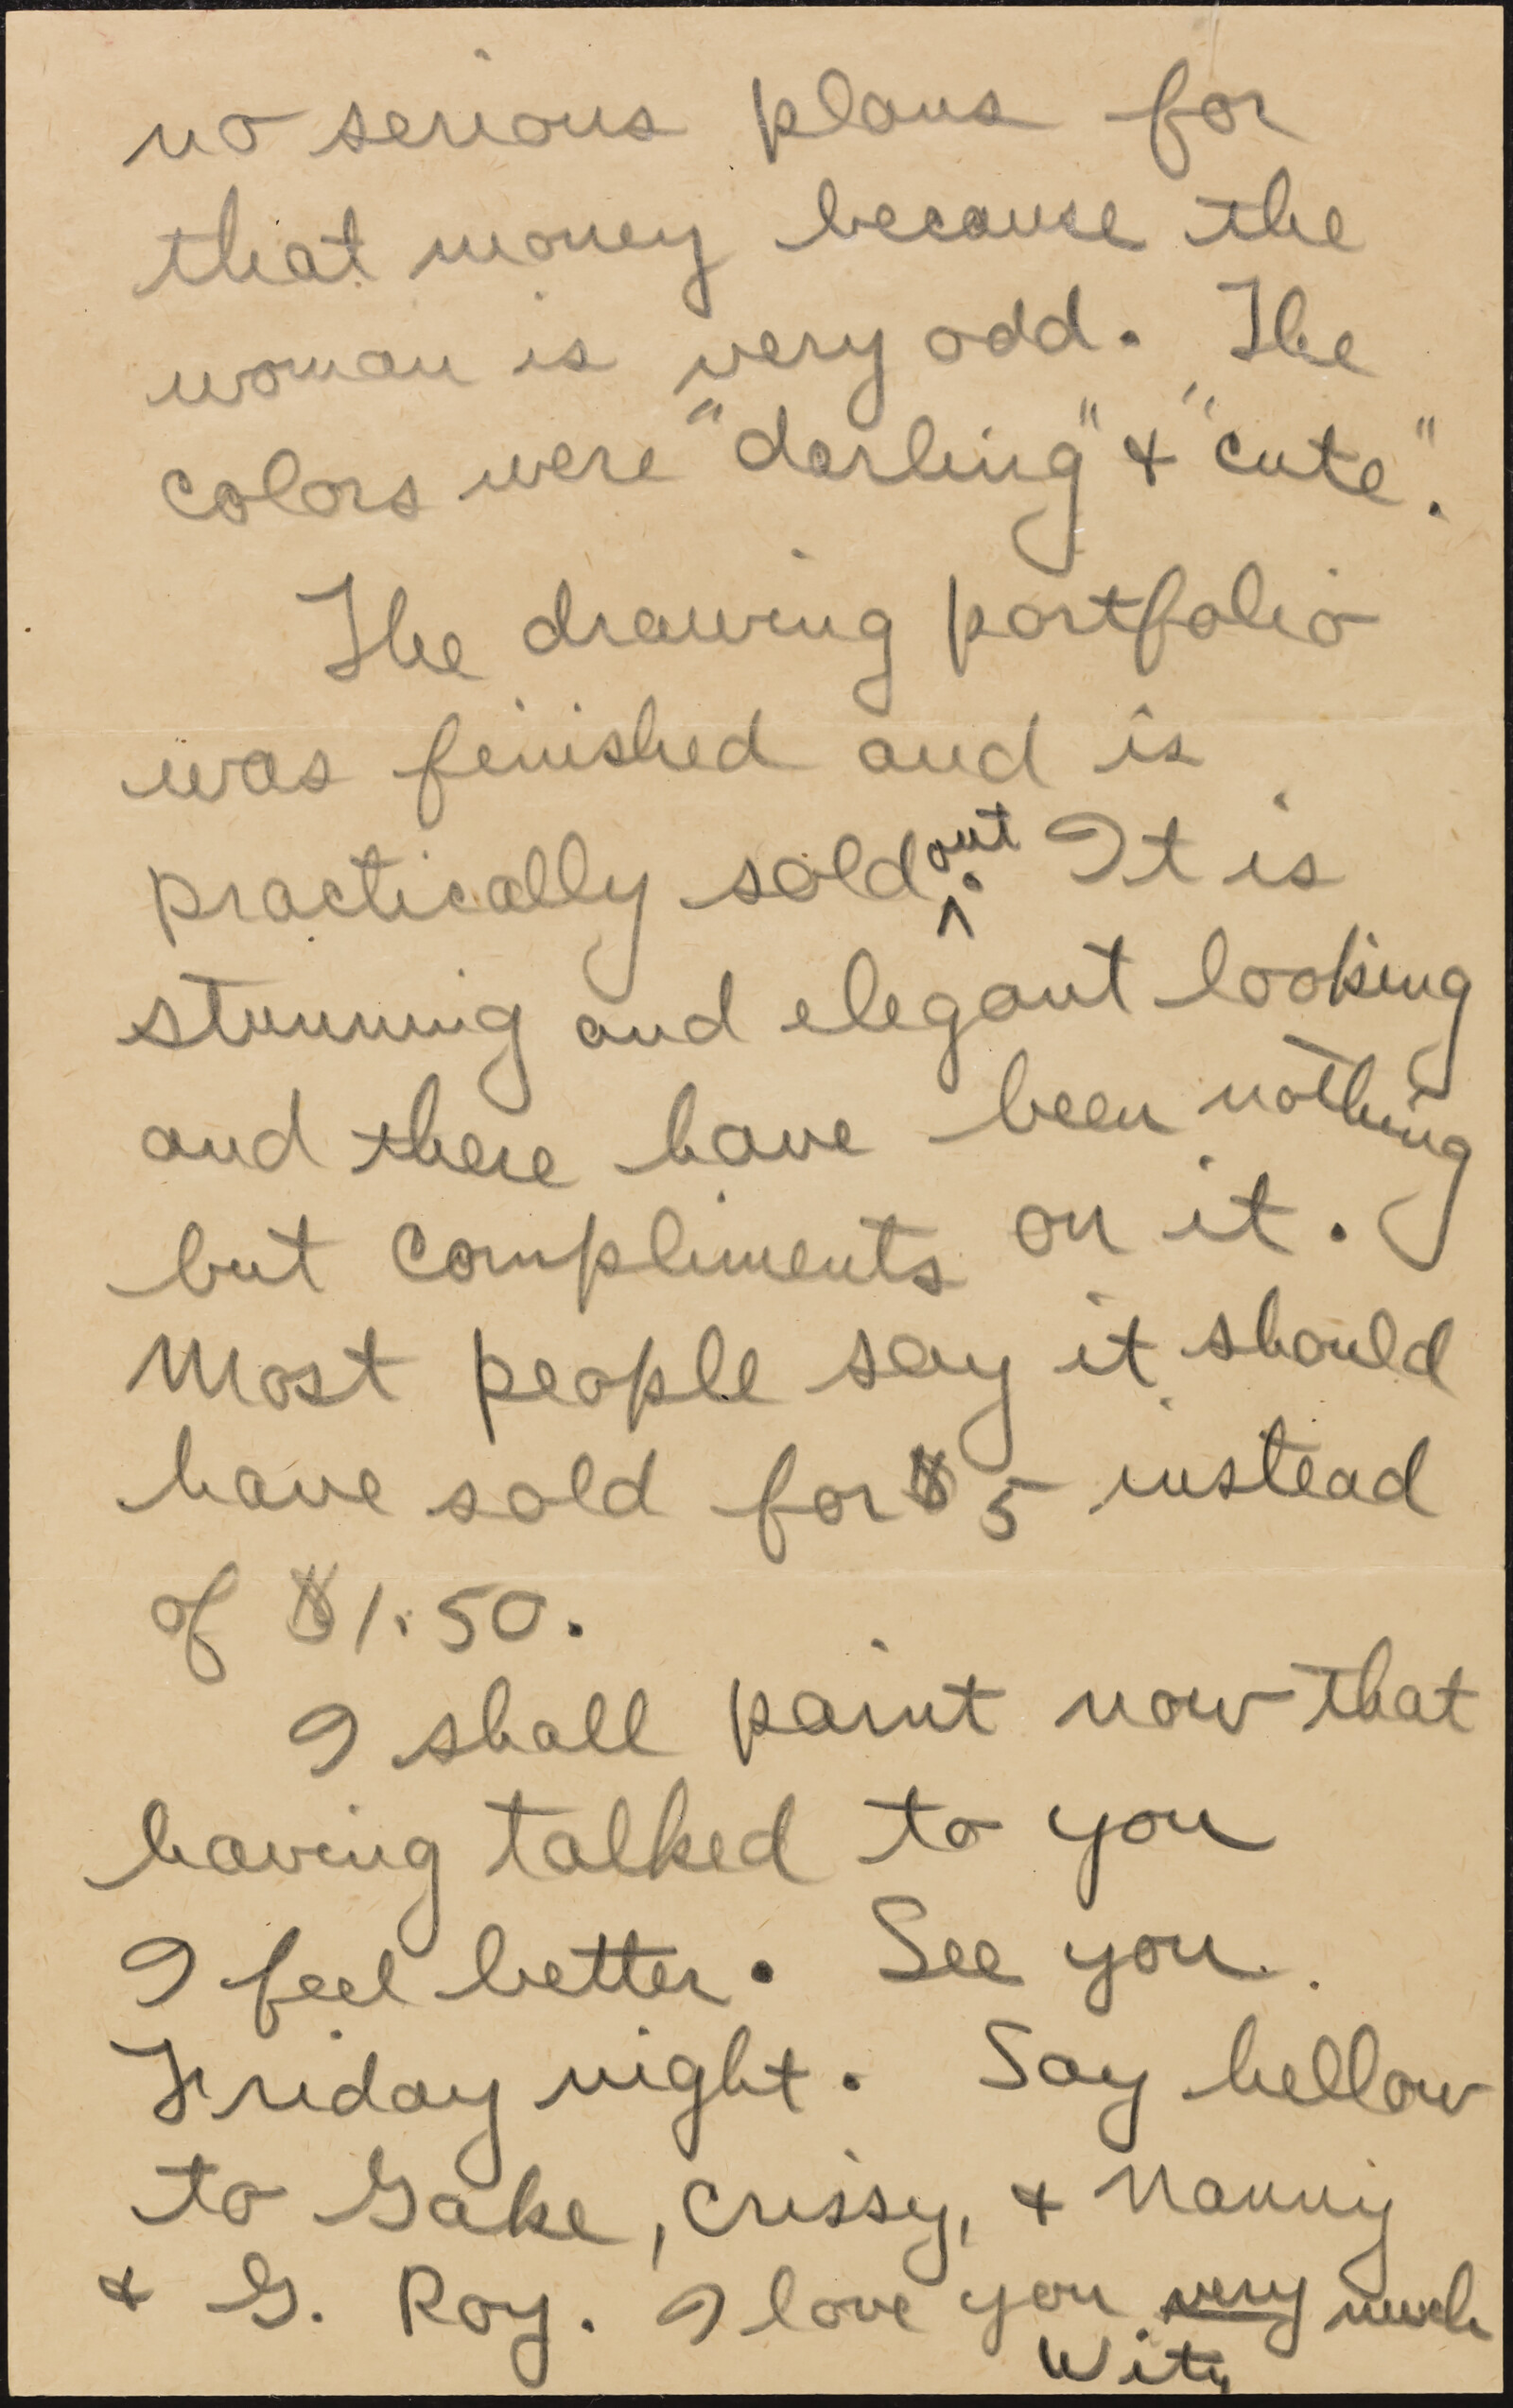 no serious plans for
that money because the
woman is very odd. The
colors were "darling" & "cute".
The drawing portfolio
was finished and is
practically sold out. It is
stunning and elegant looking
and there have been nothing
but compliments on it.
Most people say it should
have sold for $5 instead
of $1.50.
I shall paint now that
having talked to you
I feel better. See you
Friday night. Say hellow
to Gake, Crissy, & Nanny
& G. Roy. I love you very much
Wity